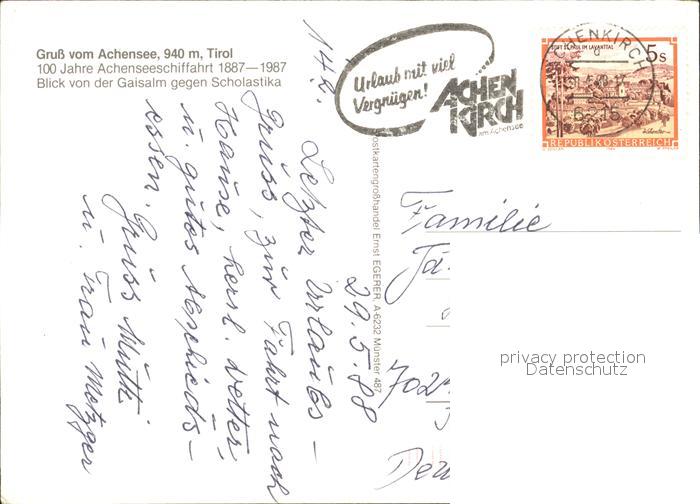 Gruß vom Achensee, 940 m, Tirol
100 Jahre Achenseeschiffahrt 1887—1987
Blick von der Gaisalm gegen Scholastika
Urlaub mit viel
Vergnügen!
ACHEN
KIRCH
am Achensee
STIFT ST. PAUL IM LAVANTTAL
5s
REPUBLIK ÖSTERREICH
ACHENKIRCH
6215
Postkartengroßhandel Ernst EGERER, A-6232 Münster 487
29.5.88
Letzter Urlaubs-
gruss, zur Fahrt nach
Hause, herrl. Wetter
u. gutes Abschieds-
essen.
Grüss Mutti
u. Frau Metzger
Familie
Jä
702
Deu
privacy protection
Datenschutz